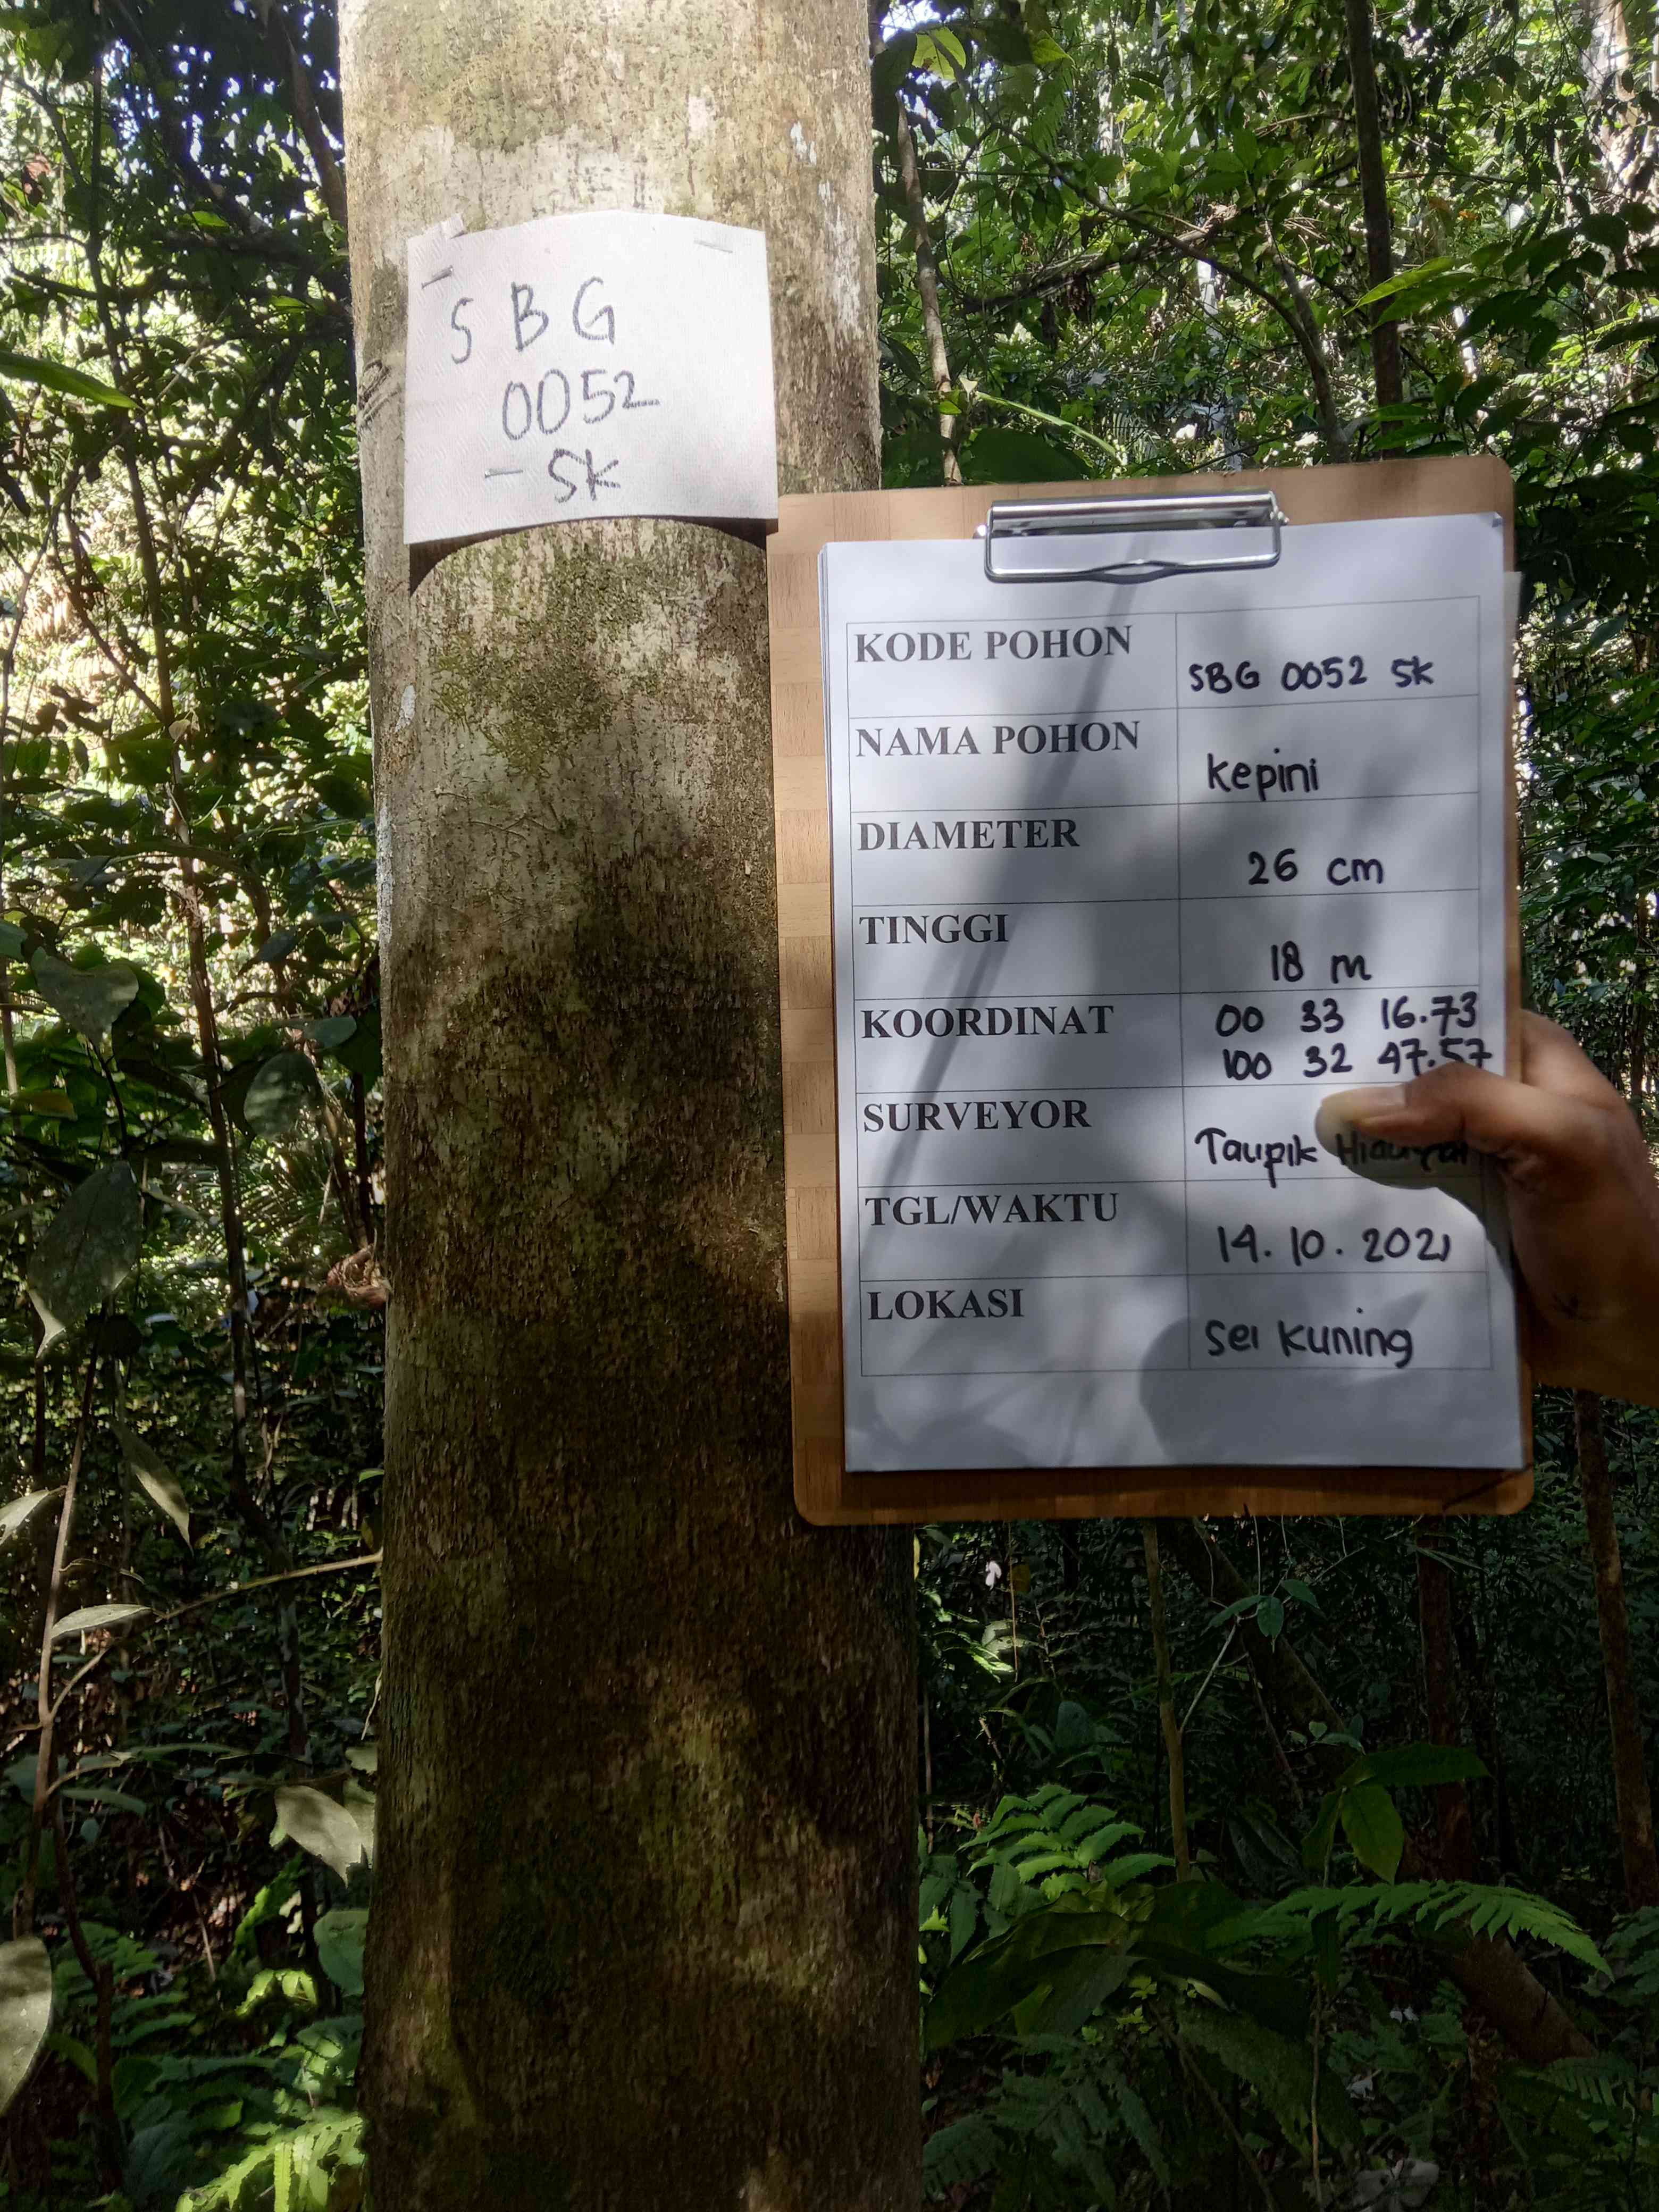 SBG
0052
- SK
KODE POHON SBG 0052 SK
NAMA POHON Kepini
DIAMETER 26 cm
TINGGI 18 m
KOORDINAT 00 33 16.73
100 32 47.57
SURVEYOR Taupik
TGL/WAKTU 14.10.2021
LOKASI Sei Kuning